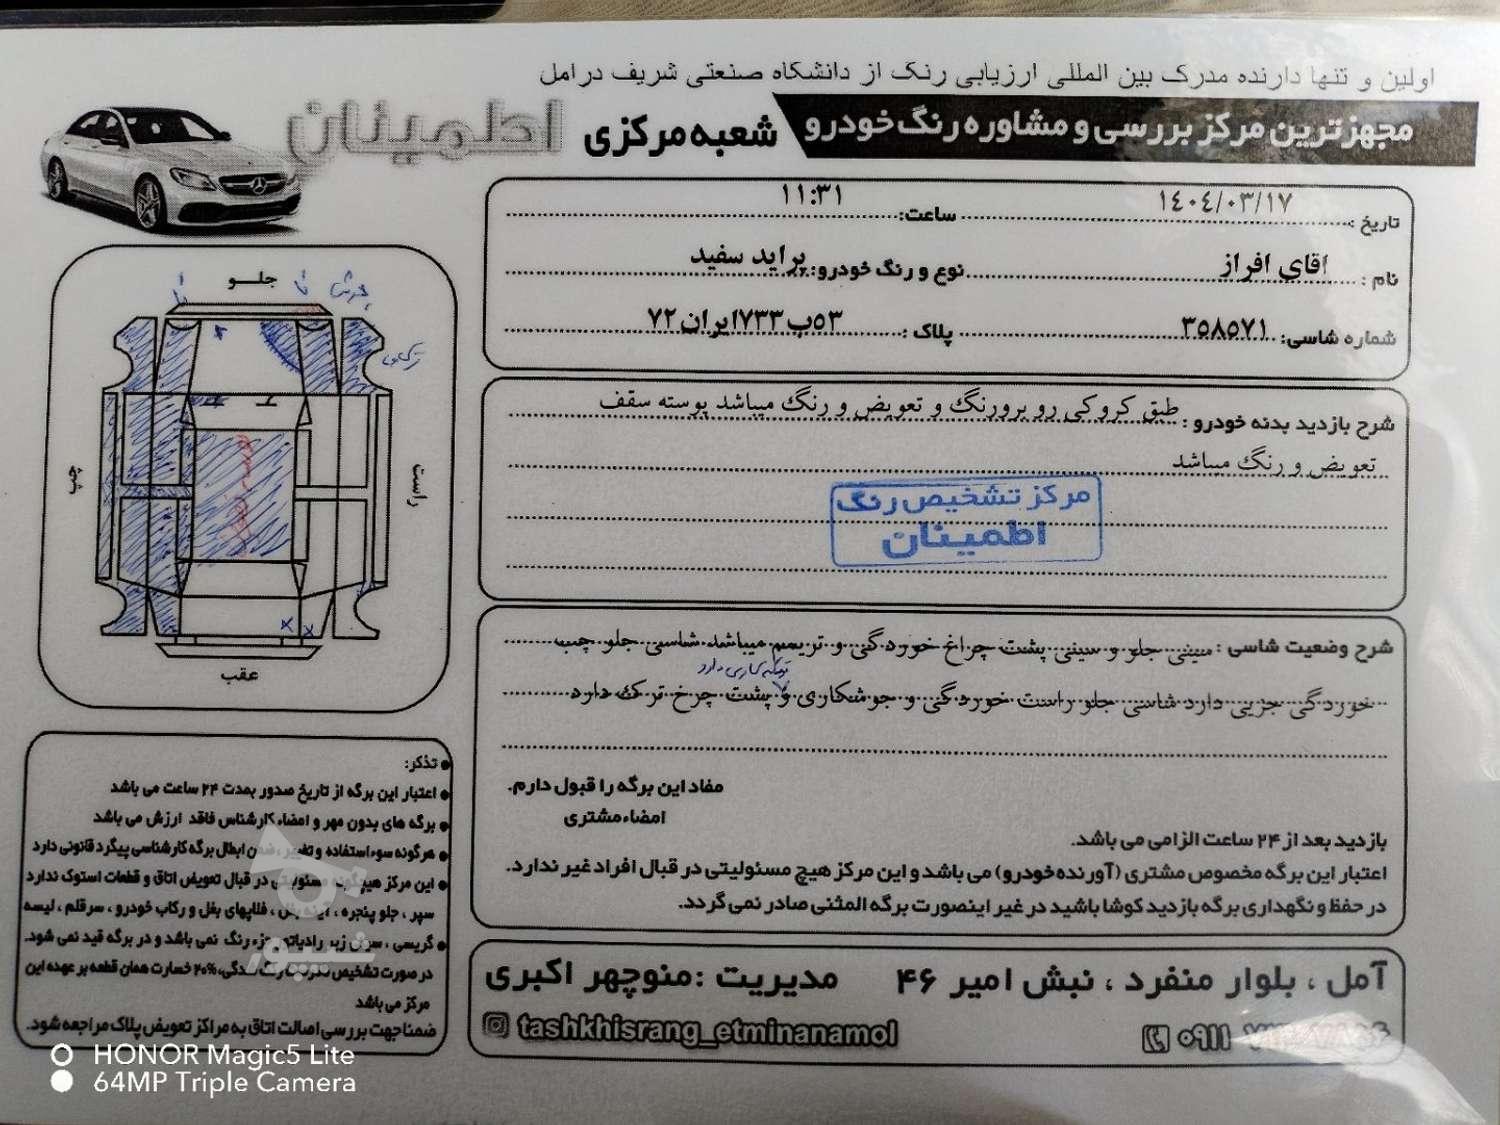 اولین و تنها دارنده مدرک بین المللی ارزیابی رنگ از دانشگاه صنعتی شریف در امل
مجهزترین مرکز بررسی و مشاوره رنگ خودرو شعبه مرکزی اطمینان
تاریخ : ۱۴۰۴/۰۳/۱۷ ساعت: ۱۱:۳۱
نام : اقای افراز نوع و رنگ خودرو: پراید سفید
شماره شاسی: ۳۵۸۵۷۱ پلاک : ۵۳ب۷۳۳ایران۷۲
شرح بازدید بدنه خودرو : طبق کروکی رو برورنگ و تعویض و رنگ میباشد پوسته سقف
تعویض و رنگ میباشد
مرکز تشخیص رنگ
اطمینان
شرح وضعیت شاسی : سینی جلو و سینی پشت چراغ خوردگی و ترمیم میباشد شاسی جلو چپ
خوردگی جزیی دارد شاسی جلو راست خوردگی و جوشکاری و پشت چرخ ترک دارد
مفاد این برگه را قبول دارم.
امضاء مشتری
بازدید بعد از ۲۴ ساعت الزامی می باشد.
اعتبار این برگه مخصوص مشتری (آورنده خودرو) می باشد و این مرکز هیچ مسئولیتی در قبال افراد غیر ندارد.
در حفظ و نگهداری برگه بازدید کوشا باشید در غیر اینصورت برگه المثنی صادر نمی گردد.
آمل ، بلوار منفرد ، نبش امیر ۴۶ مدیریت :منوچهر اکبری
۰۹۱۱
tashkhisrang_etminanamol
جلو
راست
چپ
عقب
• تذکر:
• اعتبار این برگه از تاریخ صدور بمدت ۲۴ ساعت می باشد
• برگه های بدون مهر و امضاء کارشناس فاقد ارزش می باشد
• هرگونه سوء استفاده و تغییر، ضمن ابطال برگه کارشناسی پیگرد قانونی دارد
• این مرکز هیچ گونه مسئولیتی در قبال تعویض اتاق و قطعات استوک ندارد
سپر ، جلو پنجره ، آینه بغل ، فلاپهای بغل و رکاب خودرو ، سرقلم ، لیسه
• گریسی ، سینی زیر رادیاتور جزء رنگ نمی باشد و در برگه قید نمی شود.
در صورت تشخیص رنگ شدگی، ۲۰% خسارت همان قطعه بر عهده این
مرکز می باشد
ضمنا جهت بررسی اصالت اتاق به مراکز تعویض پلاک مراجعه شود.
شیپور
HONOR Magic5 Lite
64MP Triple Camera